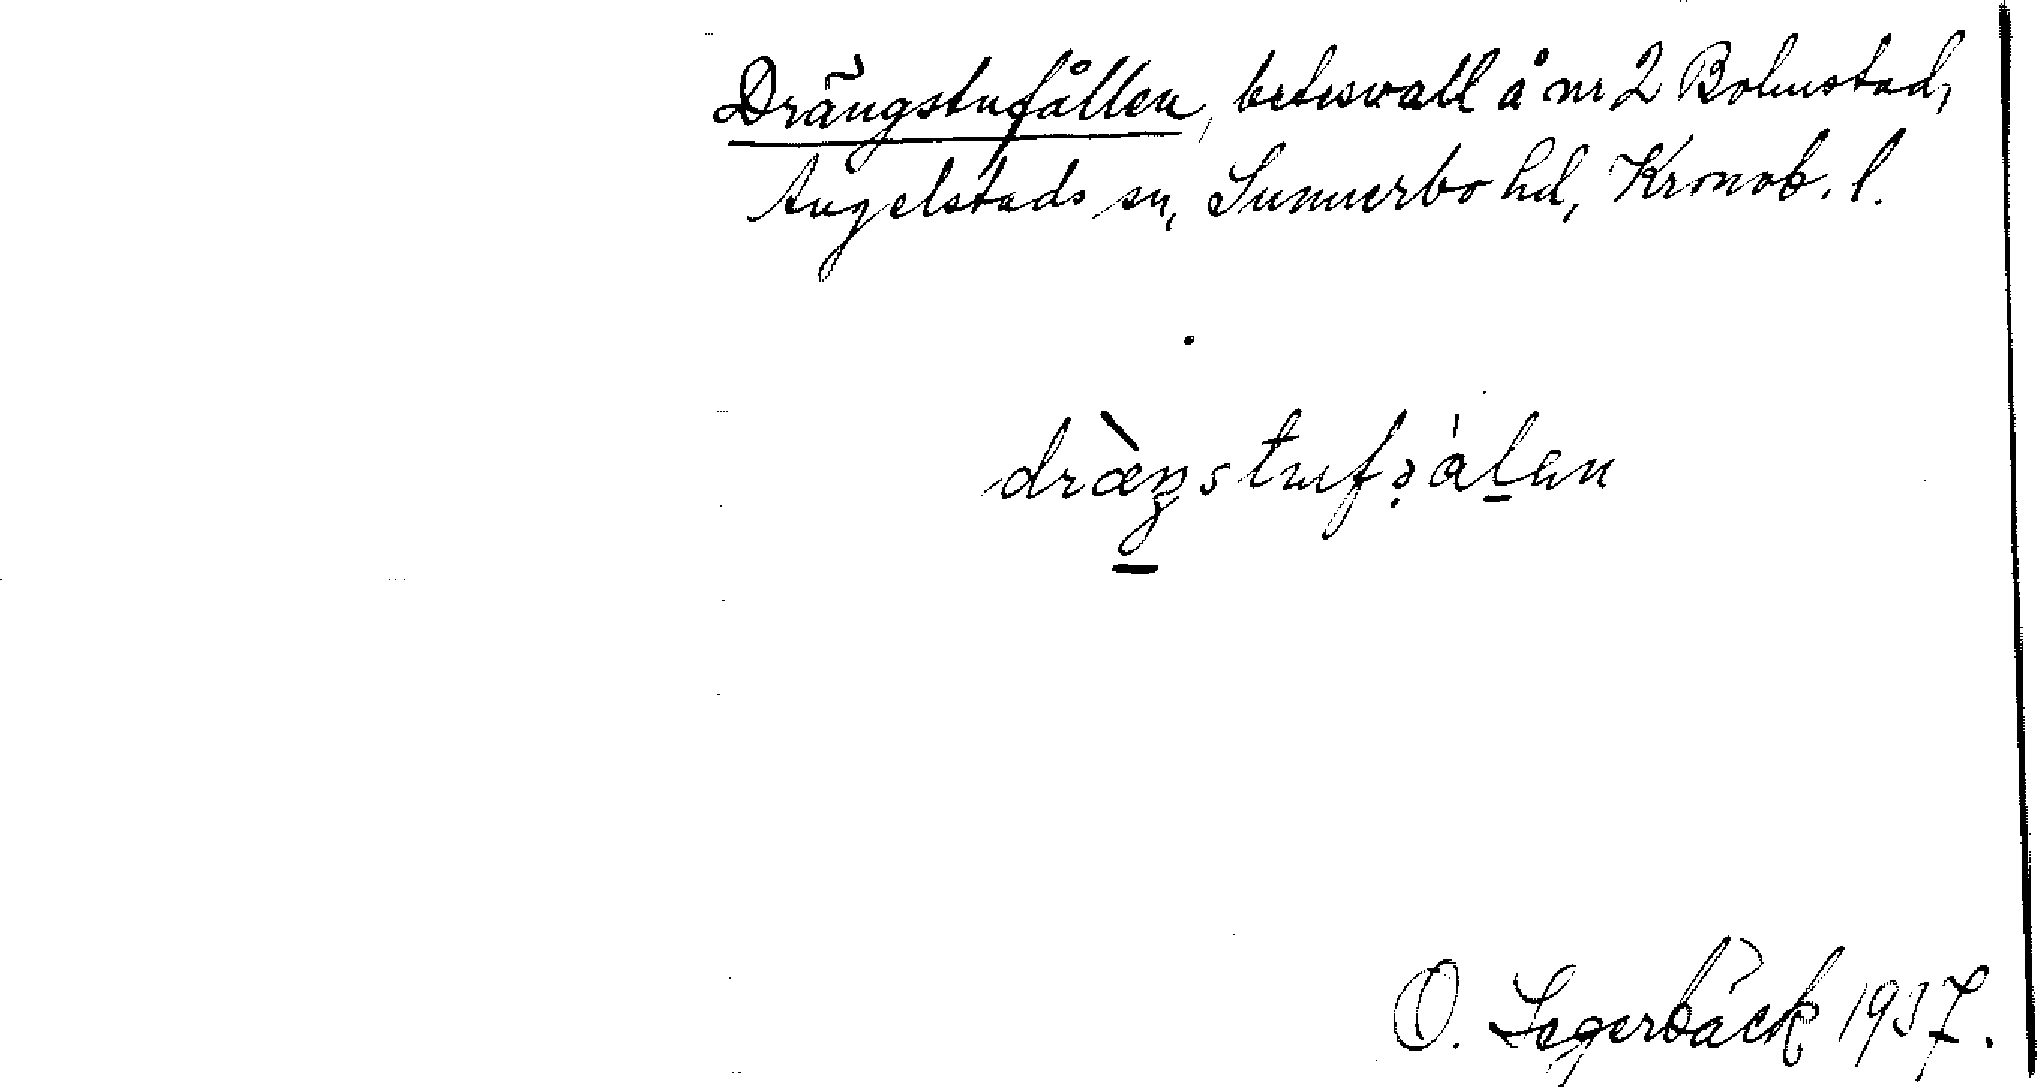 Drängstufållen, betesvall å nr 2 Bolmstad,
Angelstads sn, Sunnerbo hd, Kronob. l.
O. Segerbäck 1937.